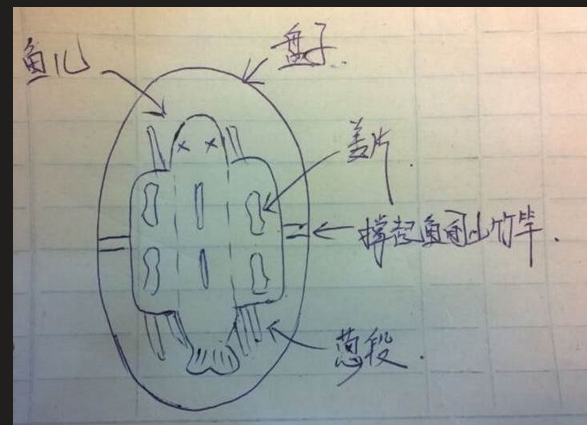 鱼儿
盘子.
姜片.
撑起鱼用山竹竿.
葱段.